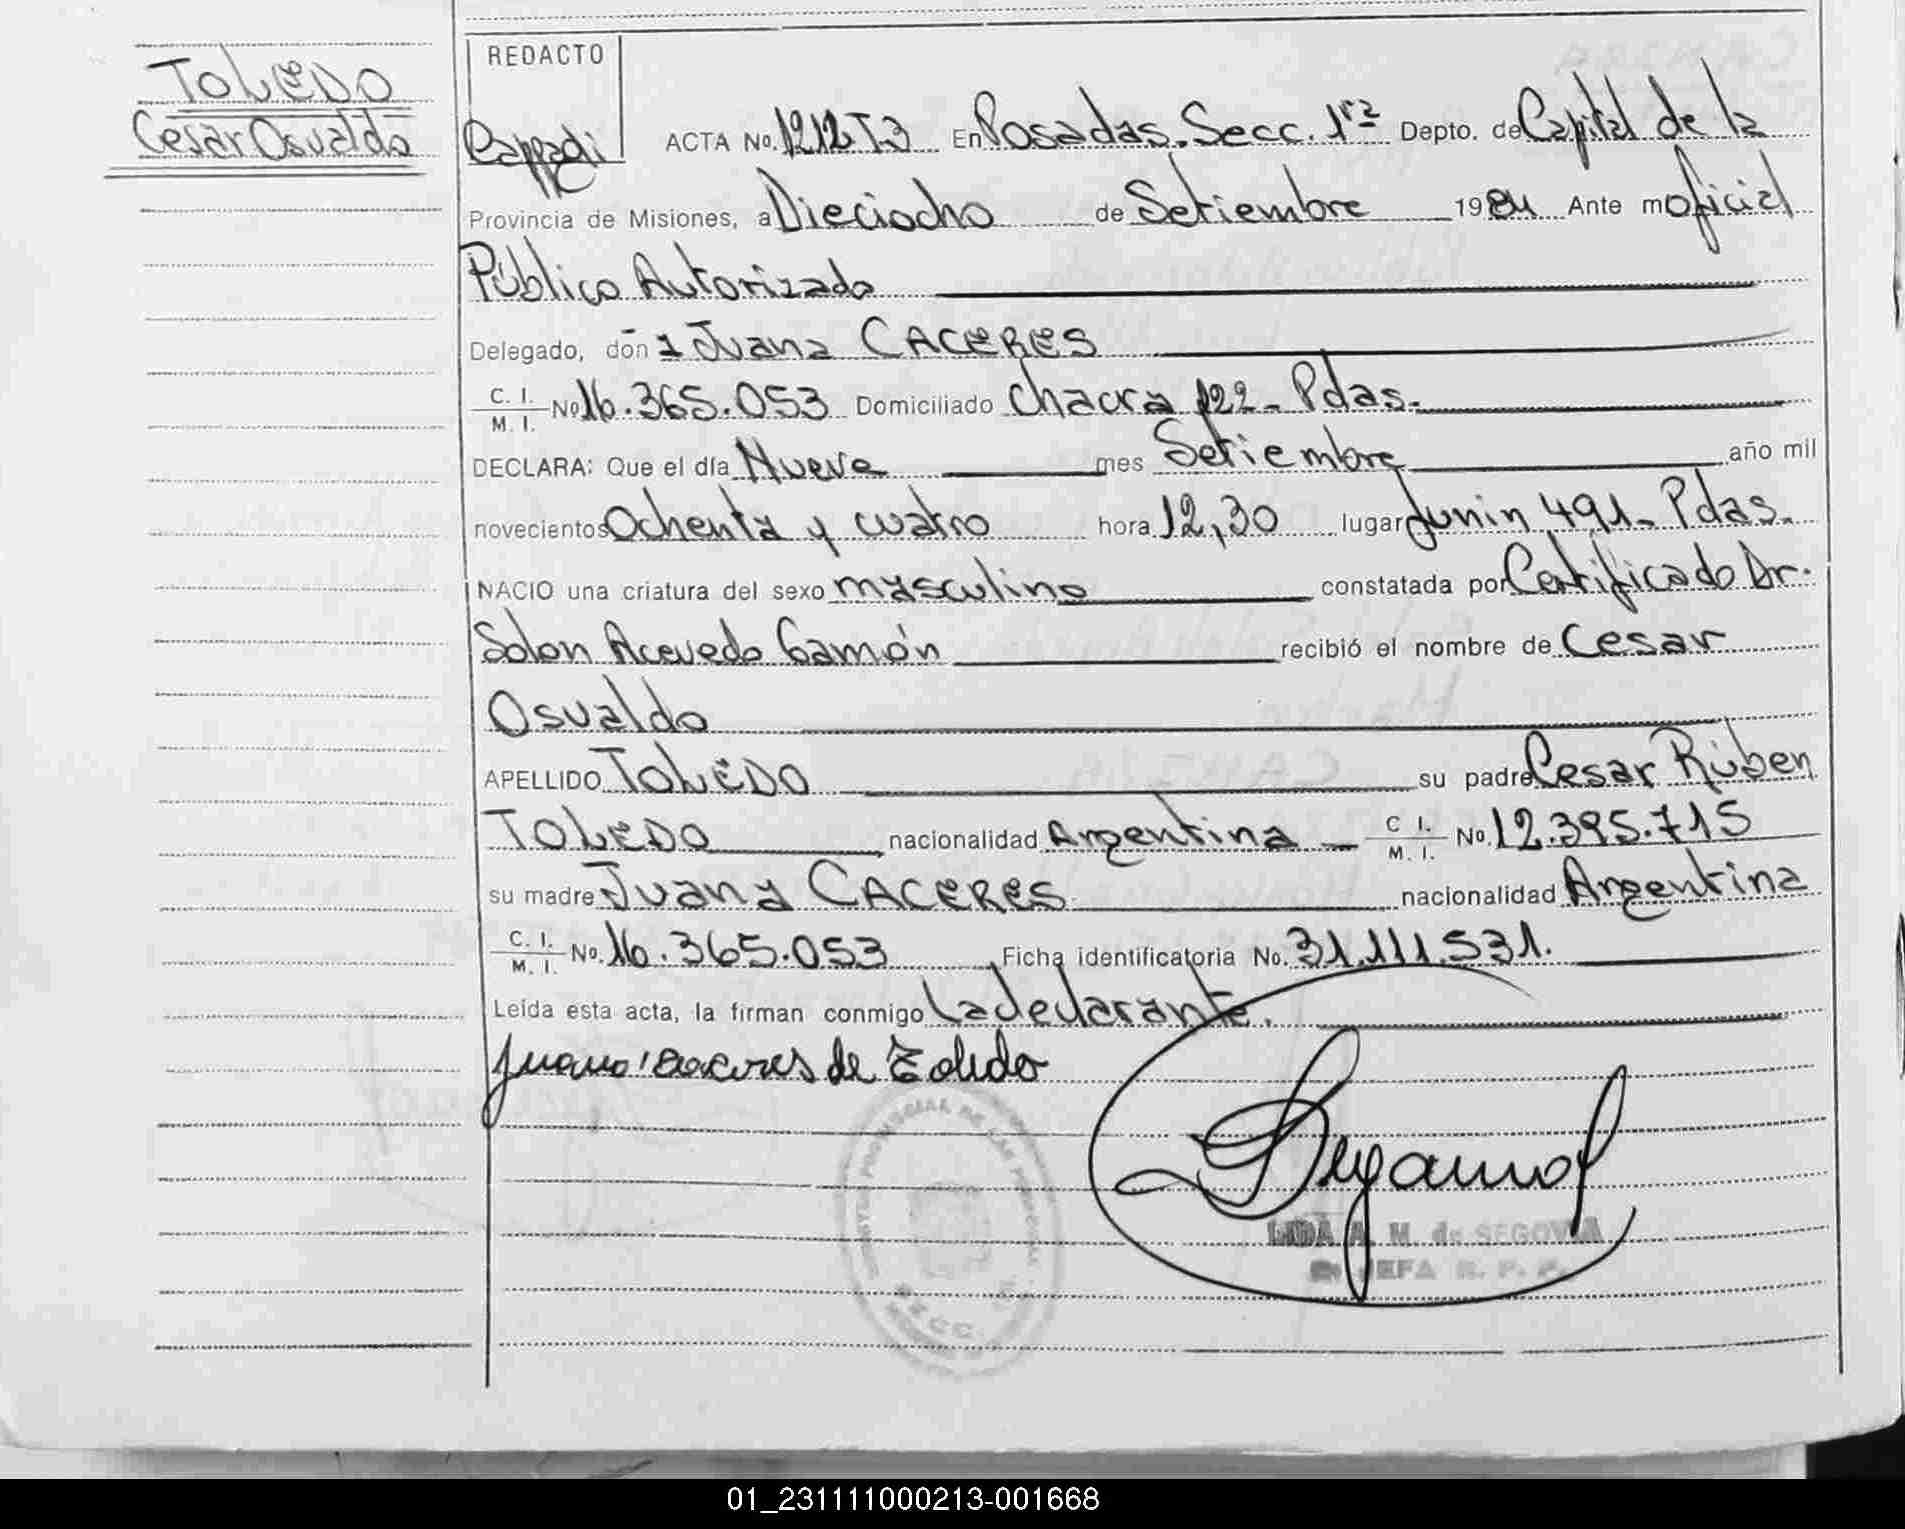 TOLEDO
Cesar Osvaldo
REDACTO
ACTA No. 1212 T3 En Posadas. Secc. 1ra Depto. de Capital de la
Provincia de Misiones, a Dieciocho de Setiembre 1984 Ante mi Oficial
Público Autorizado
Delegado, don a Juana CACERES
C. I.
M. I. No 16.365.053 Domiciliado Chacra 122 - Pdas.
DECLARA: Que el día Nueve mes Setiembre año mil
novecientos Ochenta y cuatro hora 12,30 lugar Junin 491 - Pdas.
NACIO una criatura del sexo masculino constatada por Certificado Dr.
Solon Acevedo Gamón recibió el nombre de Cesar
Osvaldo
APELLIDO TOLEDO su padre Cesar Rúben
TOLEDO nacionalidad Argentina — C I. M. I. No. 12.395.715
su madre Juana CACERES nacionalidad Argentina
C. I.
M. I. No. 16.365.053 Ficha identificatoria No. 31.111.531.
Leída esta acta, la firman conmigo La declarante.
Juana Caceres de Toledo
LIDA A. M. de SEGOVIA
JEFA R. P. P.
01_231111000213-001668